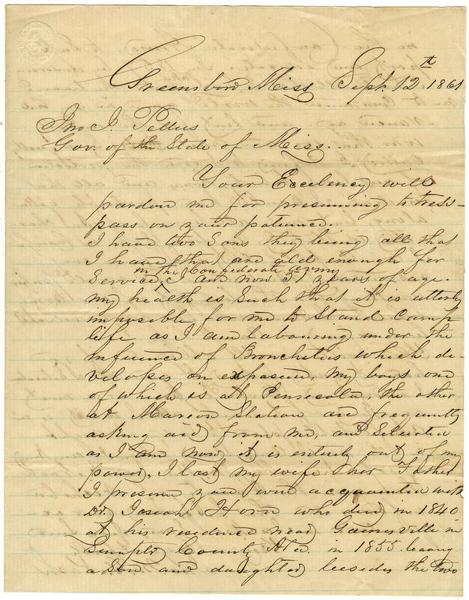 Greensboro Miss Sept. 12th 1861
Jno J. Pettus
Gov. of the State of Miss.
Your Excelency will
pardon me for presuming to tress-
pass on your patience.
I have two Sons they being all that
I have that are old enough for
Service in the Confederate Army I am now 51 years of age.
my health is Such that it is utterly
impossible for me to Stand Camp
life as I am labouring under the
influence of Bronchitus which de-
velopes on exposure, my boys one
of which is at Pensacola, the other
at Marion Station are frequently
asking aid from me, and Situated
as I am now, it is entirely out of my
power, I lost my wife her Father
I presume you were acquainted with
Dr. Josiah Horn who died in 1840
at his residence near Gainesville in
Sumpter County Ala. in 1855. leaving
a Son and daughter besides the two